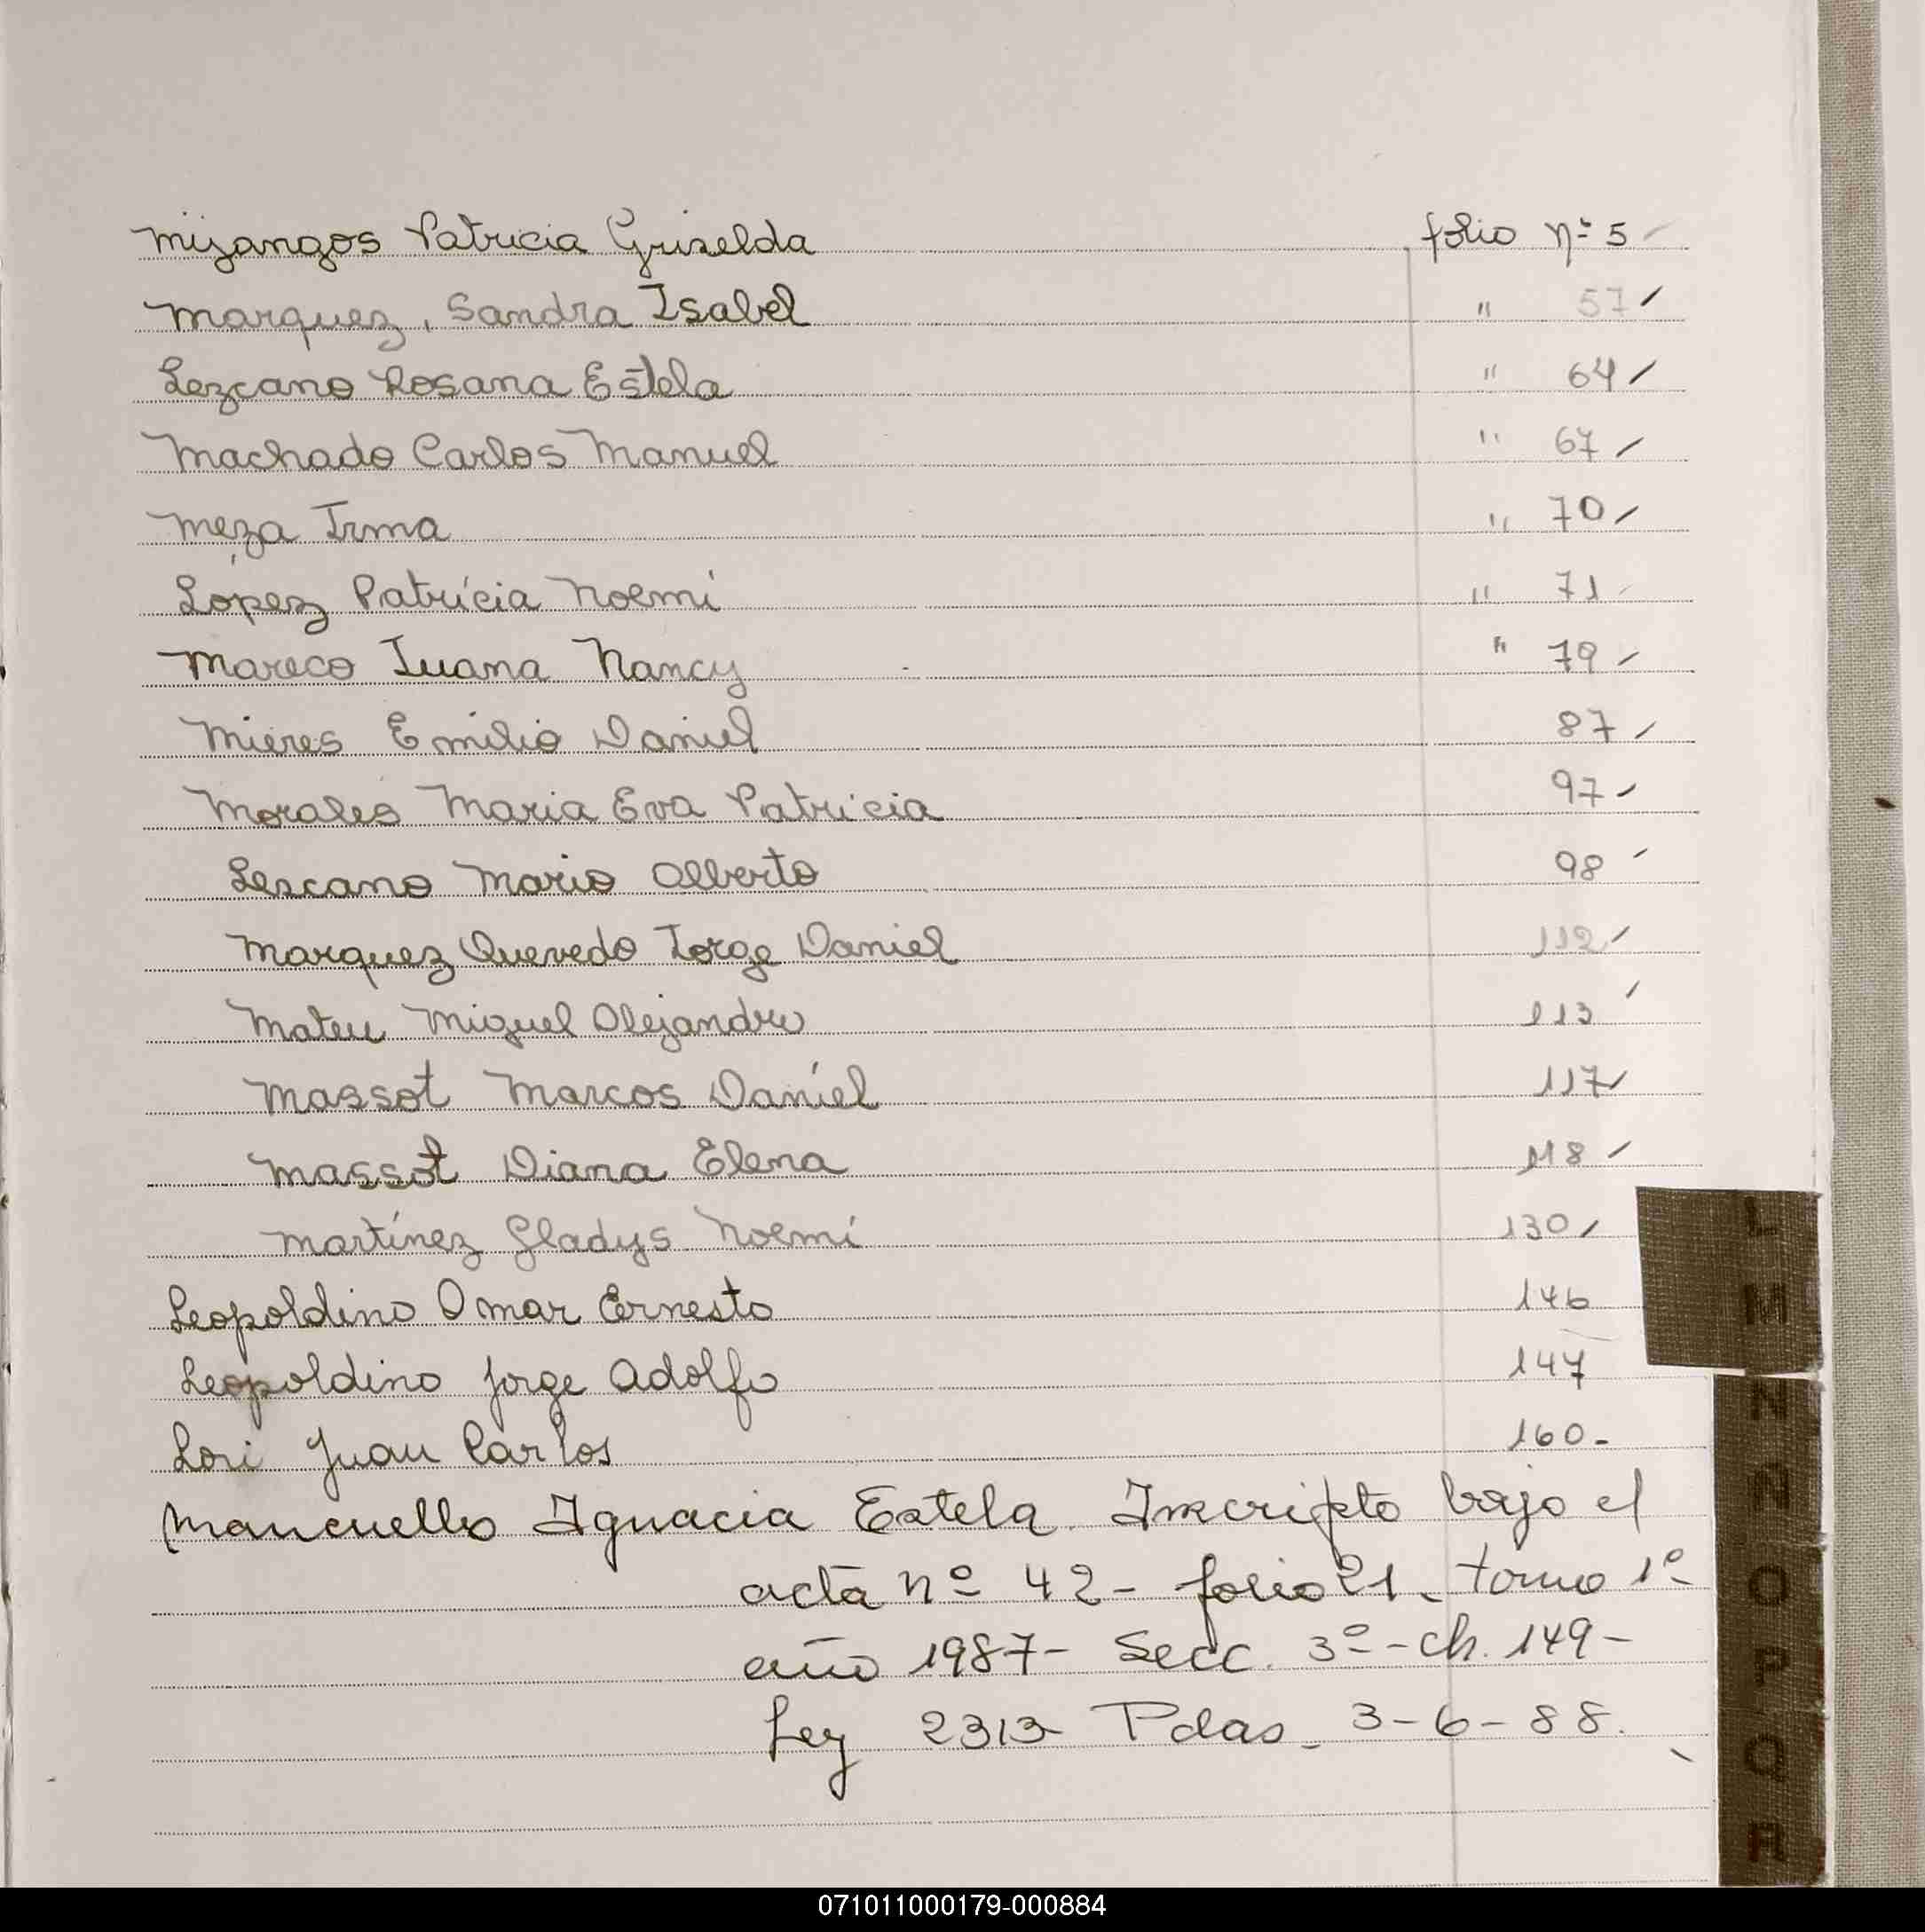 Mijangos Patricia Griselda folio nº 5
Marquez, Sandra Isabel " 57
Lezcano Rosana Estela " 64
Machado Carlos Manuel " 67
Meza Irma " 70
López Patricia Noemi " 71
Mareco Juana Nancy " 79
Mieres Emilio Daniel 87
Morales Maria Eva Patricia 97
Lescano Mario Alberto 98
Marquez Quevedo Jorge Daniel 112
Mateu Miguel Alejandro 113
Massot Marcos Daniel 117
Massot Diana Elena 118
Martínez Gladys Noemí 130
Leopoldino Omar Ernesto 146
Leopoldino Jorge Adolfo 147
Lori Juan Carlos 160-
Mancuello Ignacia Estela. Inscripto bajo el
acta nº 42- folio 21. tomo 1º
año 1987- Secc. 3º-Ch. 149-
Ley 2313 Pdas. 3-6-88.
L
M
N
Ñ
O
P
Q
R
071011000179-000884